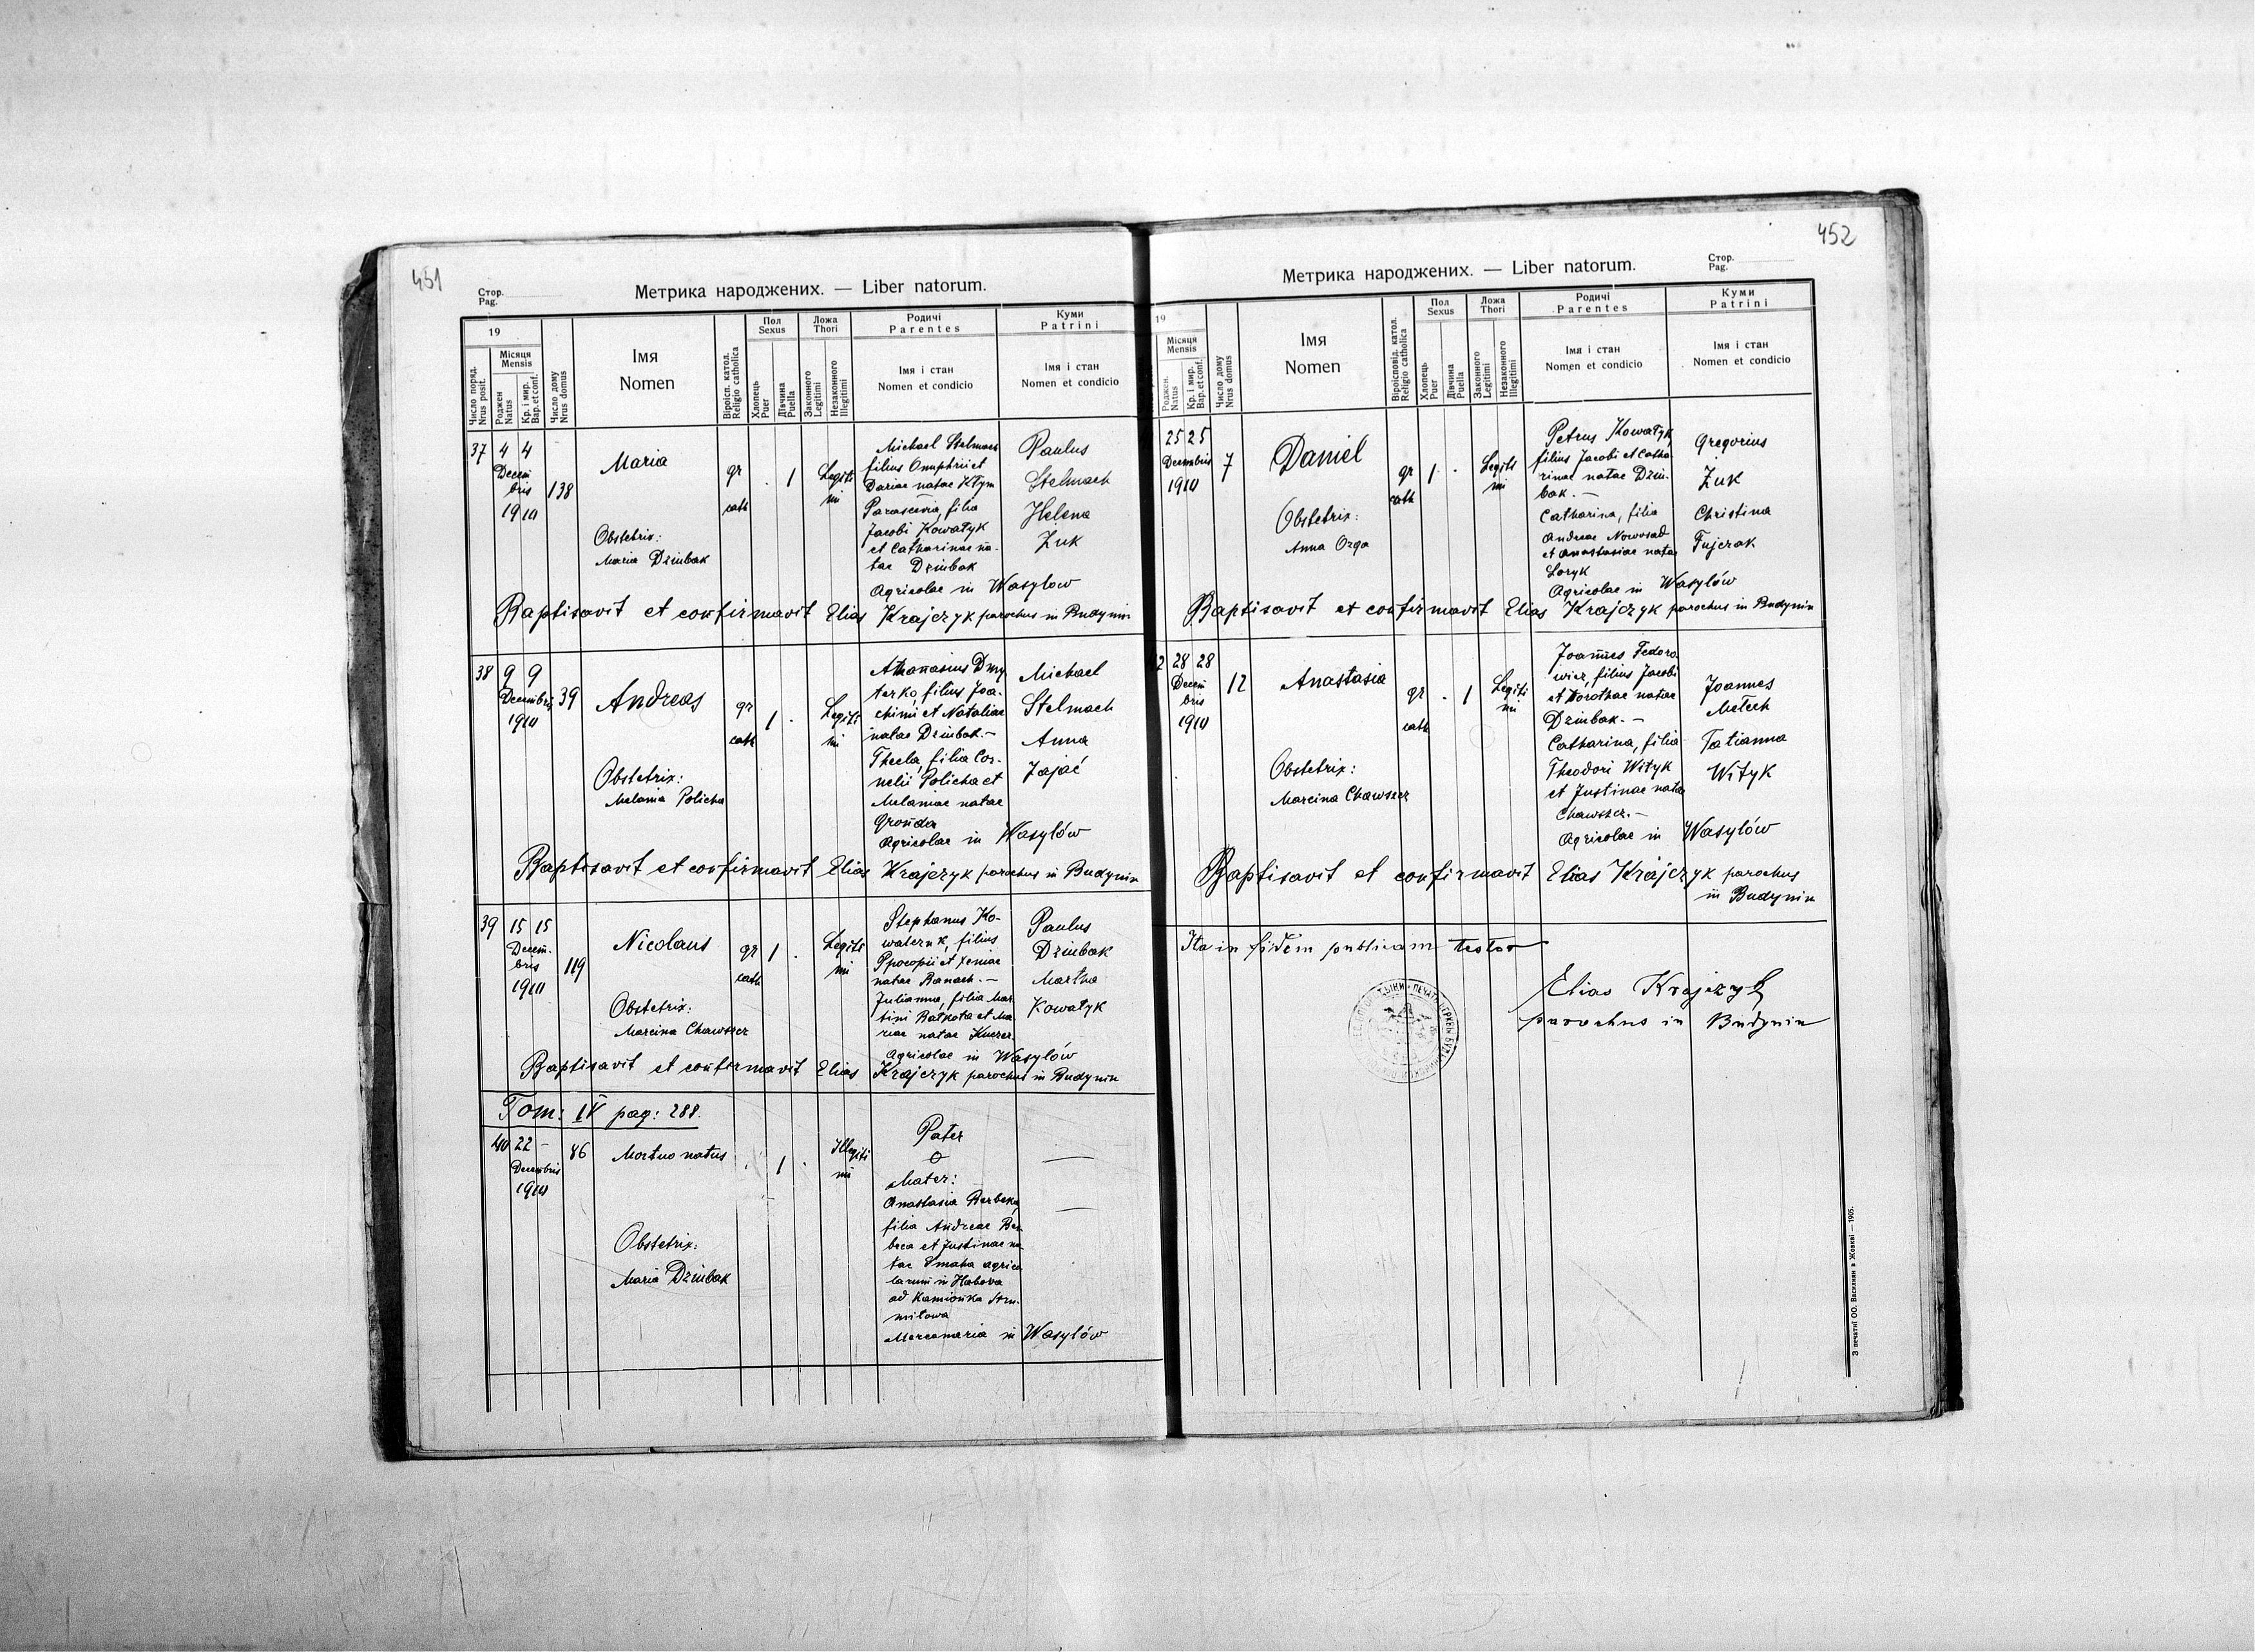 451
Стор.
Pag.
Метрика народжених. — Liber natorum.
19
Число поряд.
Nrus posit.
Місяця
Mensis
Роджен
Natus
Кр. і мир.
Bap. et conf.
Число дому
Nrus domus
Імя
Nomen
Віроісп. катол.
Religio catholica
Пол
Sexus
Хлопець
Puer
Дівчина
Puella
Ложа
Thori
Законного
Legitimi
Незаконного
Illegitimi
Родичі
Parentes
Імя і стан
Nomen et condicio
Куми
Patrini
Імя і стан
Nomen et condicio
37 4 4
Decem
bris
1910
138
Maria
Obstetrix:
Maria Dziubak
gr
cath
. 1
Legiti
mi
Michael Stelmach
filius Onuphrii et
Dariae natae Kłym
Parascevia, filia
Jacobi Kowałyk
et Catharinae na-
tae Dziubak
Agricolae in Wasylow
Paulus
Stelmach
Helena
Żuk
Baptisavit et confirmavit Elias Krajczyk parochus in Budynin
38 9 9
Decembris
1910
39
Andreas
Obstetrix:
Melania Policha
gr
cath
1 .
Legiti
mi
Athanasius Dmy
terko, filius Joa-
chimi et Nataliae
natae Dziubak.-
Thecla, filia Cor-
nelii Policha et
Melaniae natae
Gronda
Agricolae in Wasylów
Michael
Stelmach
Anna
Zajać
Baptisavit et confirmavit Elias Krajczyk parochus in Budynin
39 15 15
Decem-
bris
1910
119
Nicolaus
Obstetrix:
Marcina Chawszcz
gr
cath
1 .
Legiti
mi
Stephanus Ko-
walczuk, filius
Ppocopii et Xeniae
natae Banach.-
Julianna, filia Mar
tini Bałkota et Ma
riae natae
Agricolae in Wasylów
Paulus
Dziubak
Martha
Kowałyk
Baptisavit et confirmavit Elias Krajczyk parochus in Budynin
Tom: IV pag: 288.
40 22 -
Decembris
1910
86
Mortuo natus
Obstetrix:
Maria Dziubak
. 1 .
Illegiti
mi
Pater
O
Mater:
Anastasia Berbeka
filia Andreae Ber
beca et Justinae na-
tae Smaha agrico
larum in
ad Kamionka Stru-
miłowa
Mercenaria in Wasylów
452
Стор.
Pag.
Метрика народжених. — Liber natorum.
19
Місяця
Mensis
Роджен.
Natus
Кр. і мир.
Bap. et conf.
Число дому
Nrus domus
Імя
Nomen
Віроісповід. катол.
Religio catholica
Пол
Sexus
Хлопець
Puer
Дівчина
Puella
Ложа
Thori
Законного
Legitimi
Незаконного
Illegitimi
Родичі
Parentes
Імя і стан
Nomen et condicio
Куми
Patrini
Імя і стан
Nomen et condicio
25 25
Decembris
1910
7
Daniel
Obstetrix:
Anna Orga
gr
cath
1 .
Legiti
mi
Petrus Kowałyk
filius Jacobi et Catha
rinae natae Dziu-
bak.-
Catharina, filia
Andreae Nowosad
et Anastasiae natae
Loryk
Agricolae in Wasylów
Gregorius
Żuk
Christina
Fujczak
Baptisavit et confirmavit Elias Krajczyk parochus in Budynin
2 28 28
Decem
bris
1910
12
Anastasia
Obstetrix:
Marcina Chawszcz
gr
cath
. 1
Legiti
mi
Joannes Fedoro
wicz, filius Jacobi
et Dorothae natae
Dziubak.-
Catharina, filia
Theodori Wityk
et Justinae natae
Chawszcz.-
Agricolae in Wasylów
Joannes
Metech
Tatianna
Wityk
Baptisavit et confirmavit Elias Krajczyk parochus
in Budynin
Ita in fidem publicam testor
Elias Krajczyk
parochus in Budynin
З печатні ОО. Василиян в Жовкві — 1905.